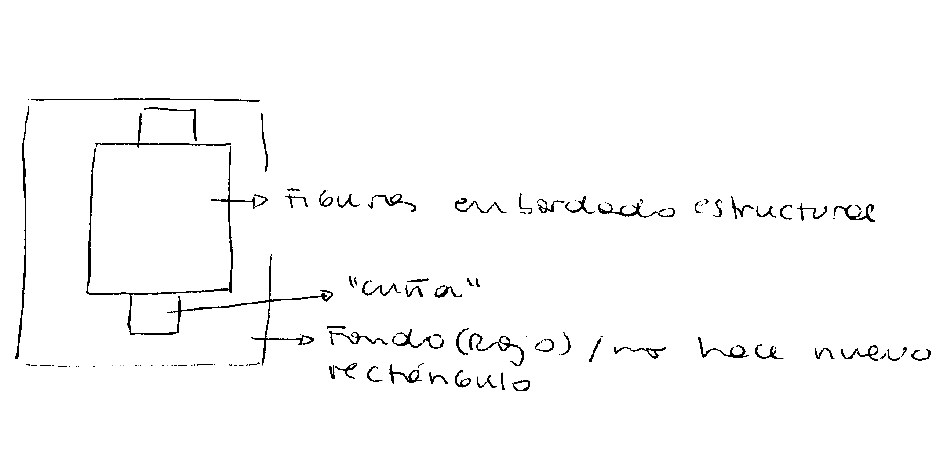 Figuras en bordado estructural
"cuña"
Fondo (Rojo) / no hace nuevo
rectángulo